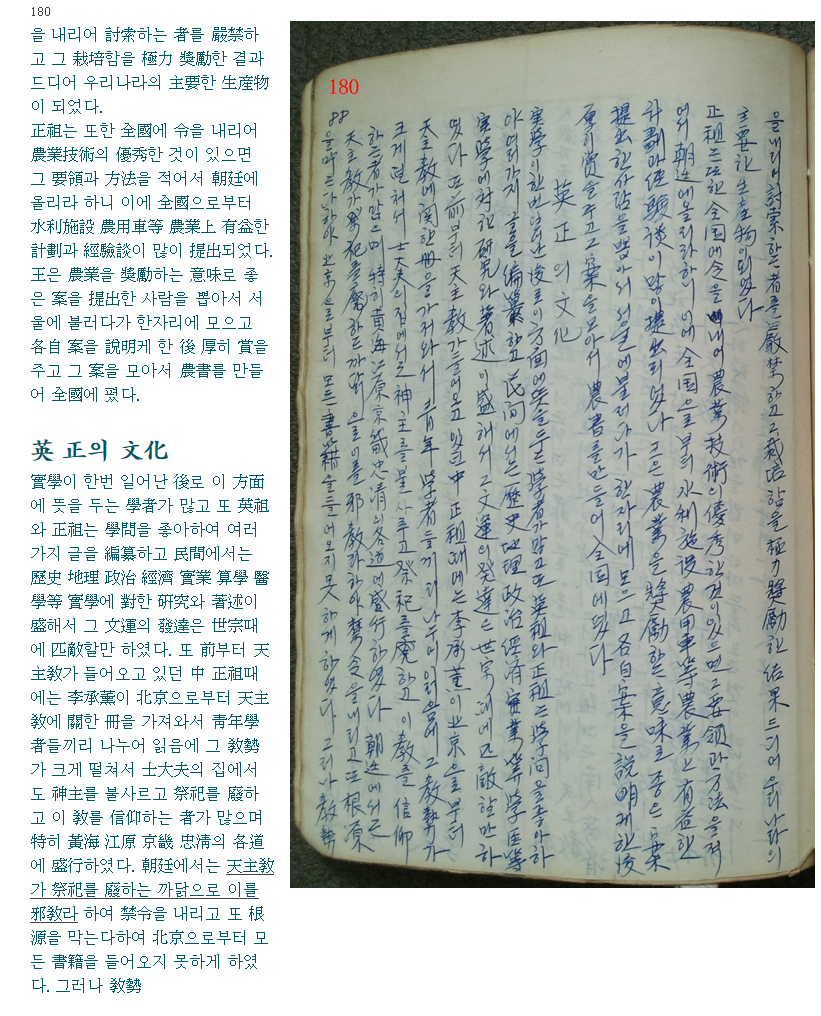 180
을 내리어 討索하는 者를 嚴禁하
고 그 栽培함을 極力 奬勵한 결과
드디어 우리나라의 主要한 生産物
이 되었다.
正祖는 또한 全國에 令을 내리어
農業技術의 優秀한 것이 있으면
그 要領과 方法을 적어서 朝廷에
올리라 하니 이에 全國으로부터
水利施設 農用車等 農業上 有益한
計劃과 經驗談이 많이 提出되었다.
王은 農業을 奬勵하는 意味로 좋
은 案을 提出한 사람을 뽑아서 서
울에 불러다가 한자리에 모으고
各自 案을 說明케 한 後 厚히 賞을
주고 그 案을 모아서 農書를 만들
어 全國에 폈다.
英 正의 文化
實學이 한번 일어난 後로 이 方面
에 뜻을 두는 學者가 많고 또 英祖
와 正祖는 學問을 좋아하여 여러
가지 글을 編纂하고 民間에서는
歷史 地理 政治 經濟 實業 算學 醫
學等 實學에 對한 硏究와 著述이
盛해서 그 文運의 發達은 世宗때
에 匹敵할만 하였다. 또 前부터 天
主敎가 들어오고 있던 中 正祖때
에는 李承薰이 北京으로부터 天主
敎에 關한 冊을 가져와서 靑年學
者들끼리 나누어 읽음에 그 敎勢
가 크게 떨쳐서 士大夫의 집에서
도 神主를 불사르고 祭祀를 廢하
고 이 敎를 信仰하는 者가 많으며
特히 黃海 江原 京畿 忠淸의 各道
에 盛行하였다. 朝廷에서는 天主敎
가 祭祀를 廢하는 까닭으로 이를
邪敎라 하여 禁令을 내리고 또 根
源을 막는다하여 北京으로부터 모
든 書籍을 들어오지 못하게 하였
다. 그러나 敎勢
180
을내리어討索하는者를嚴禁하고그栽培함을極力奬励한結果드디어우리나라의
主要한生産物이되였다
正祖는또한全国에令을내어農業技術의優秀한것이있으면그要領과方法을적
어서朝廷에올리라하니이에全国으로부터水利施設農用車等農業上有益한
計劃과経験談이많이提出되였다 王은農業을奬励하는意味로좋은案을
提出한사람을뽑아서서울에불러다가한자리에모으고各自案을說明케한後
厚히賞을주고그案을모아서農書를만들어全国에폈다
英正의文化
実學이한번일어난後로이方面에뜻을두는学者가많고또英祖와正祖는学问을좋아하
야여러가지글을編纂하고民间에서는歷史地理政治經済実業算学医学等
実学에対한研究와著述이盛해서그文運의発達은世宗때에匹敵할만하
였다 또前부터天主教가들어오고있던中正祖때에는李承薰이北京으로부터
天主教에関한册을가저와서青年学者들끼리나누어읽음에그教勢가
크게떨처서士大夫의집에서도神主를불사루고祭祀를廢하고이教를信仰
하는者가많으며特히黄海江原京畿忠清의各道에盛行하였다 朝廷에서는
天主教가祭祀를廢하는까닭으로이를邪教라하야禁令을내리고또根源
을막는다하야北京으로부터모든書籍을들어오지못하게하였다 그러나教勢
88